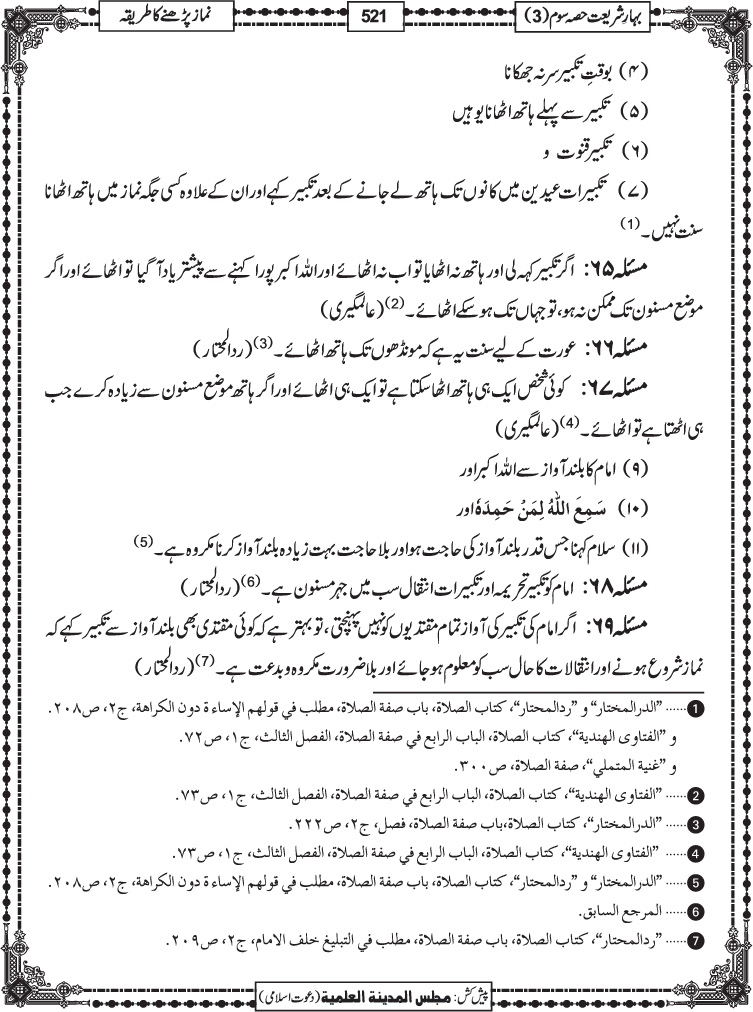 بہارِ شریعت حصہ سوم (3)
521
نماز پڑھنے کا طریقہ
(۴) بوقتِ تکبیر سر نہ جھکانا
(۵) تکبیر سے پہلے ہاتھ اٹھانا یوہیں
(۶) تکبیر قنوت و
(۷) تکبیرات عیدین میں کانوں تک ہاتھ لے جانے کے بعد تکبیر کہے اور ان کے علاوہ کسی جگہ نماز میں ہاتھ اٹھانا
سنت نہیں۔(1)
مسئلہ ۶۵: اگر تکبیر کہہ لی اور ہاتھ نہ اٹھایا تو اب نہ اٹھائے اور اللہ اکبر پورا کہنے سے پیشتر یاد آگیا تو اٹھائے اور اگر
موضع مسنون تک ممکن نہ ہو، تو جہاں تک ہو سکے اٹھائے۔(2) (عالمگیری)
مسئلہ ۶۶: عورت کے لیے سنت یہ ہے کہ مونڈھوں تک ہاتھ اٹھائے۔(3) (ردالمحتار)
مسئلہ ۶۷: کوئی شخص ایک ہی ہاتھ اٹھا سکتا ہے تو ایک ہی اٹھائے اور اگر ہاتھ موضع مسنون سے زیادہ کرے جب
ہی اٹھتا ہے تو اٹھائے۔(4) (عالمگیری)
(۹) امام کا بلند آواز سے اللہ اکبر اور
(۱۰) سَمِعَ اللّٰهُ لِمَنْ حَمِدَهٗ اور
(۱۱) سلام کہنا جس قدر بلند آواز کی حاجت ہو اور بلا حاجت بہت زیادہ بلند آواز کرنا مکروہ ہے۔(5)
مسئلہ ۶۸: امام کو تکبیر تحریمہ اور تکبیرات انتقال سب میں جہر مسنون ہے۔(6) (ردالمحتار)
مسئلہ ۶۹: اگر امام کی تکبیر کی آواز تمام مقتدیوں کو نہیں پہنچتی، تو بہتر ہے کہ کوئی مقتدی بھی بلند آواز سے تکبیر کہے کہ
نماز شروع ہونے اور انتقالات کا حال سب کو معلوم ہو جائے اور بلا ضرورت مکروہ و بدعت ہے۔(7) (ردالمحتار)
1 ...... ”الدرالمختار“ و ”ردالمحتار“، كتاب الصلاة، باب صفة الصلاة، مطلب في قولهم الإساءة دون الكراهة، ج۲، ص۲۰۸.
و ”الفتاوى الهندية“، كتاب الصلاة، الباب الرابع في صفة الصلاة، الفصل الثالث، ج۱، ص۷۲.
و ”غنية المتملي“، صفة الصلاة، ص۳۰۰.
2 ...... ”الفتاوى الهندية“، كتاب الصلاة، الباب الرابع في صفة الصلاة، الفصل الثالث، ج۱، ص۷۳.
3 ...... ”الدرالمختار“، كتاب الصلاة، باب صفة الصلاة، فصل، ج۲، ص۲۲۲.
4 ...... ”الفتاوى الهندية“، كتاب الصلاة، الباب الرابع في صفة الصلاة، الفصل الثالث، ج۱، ص۷۳.
5 ...... ”الدرالمختار“ و ”ردالمحتار“، كتاب الصلاة، باب صفة الصلاة، مطلب في قولهم الإساءة دون الكراهة، ج۲، ص۲۰۸.
6 ...... المرجع السابق.
7 ...... ”ردالمحتار“، كتاب الصلاة، باب صفة الصلاة، مطلب في التبليغ خلف الامام، ج۲، ص۲۰۹.
پیش کش: مجلس المدينة العلمية (دعوت اسلامی)